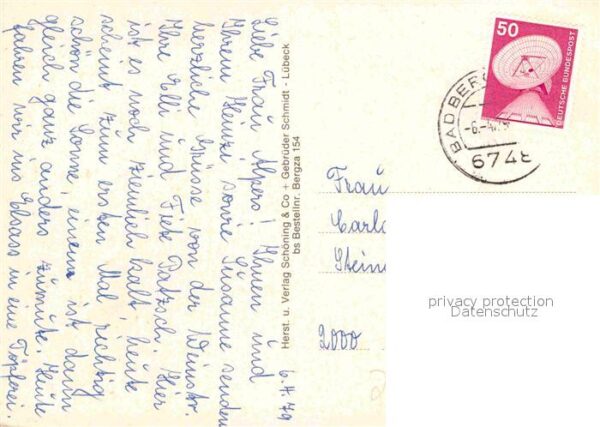 6.4.79
Liebe Frau Alpers! Ihnen und
Ihrem Heinzi sowie Susanne senden
herzliche Grüsse von der Weinstr.
Ihre Elli und Fietz Patzsch. Hier
ist es noch ziemlich kalt, heute
scheint zum ersten Mal richtig
schön die Sonne, einem ist dann
gleich ganz anders zumute. Heute
fahren wir ins Elsass in eine Töpferei.
Herst. u. Verlag Schöning & Co + Gebrüder Schmidt - Lübeck
bs Bestellnr. Bergza 154
50
DEUTSCHE BUNDESPOST
BAD BERG
-6.-4.79
6748
Frau
Carla
Stein
2000
privacy protection
Datenschutz